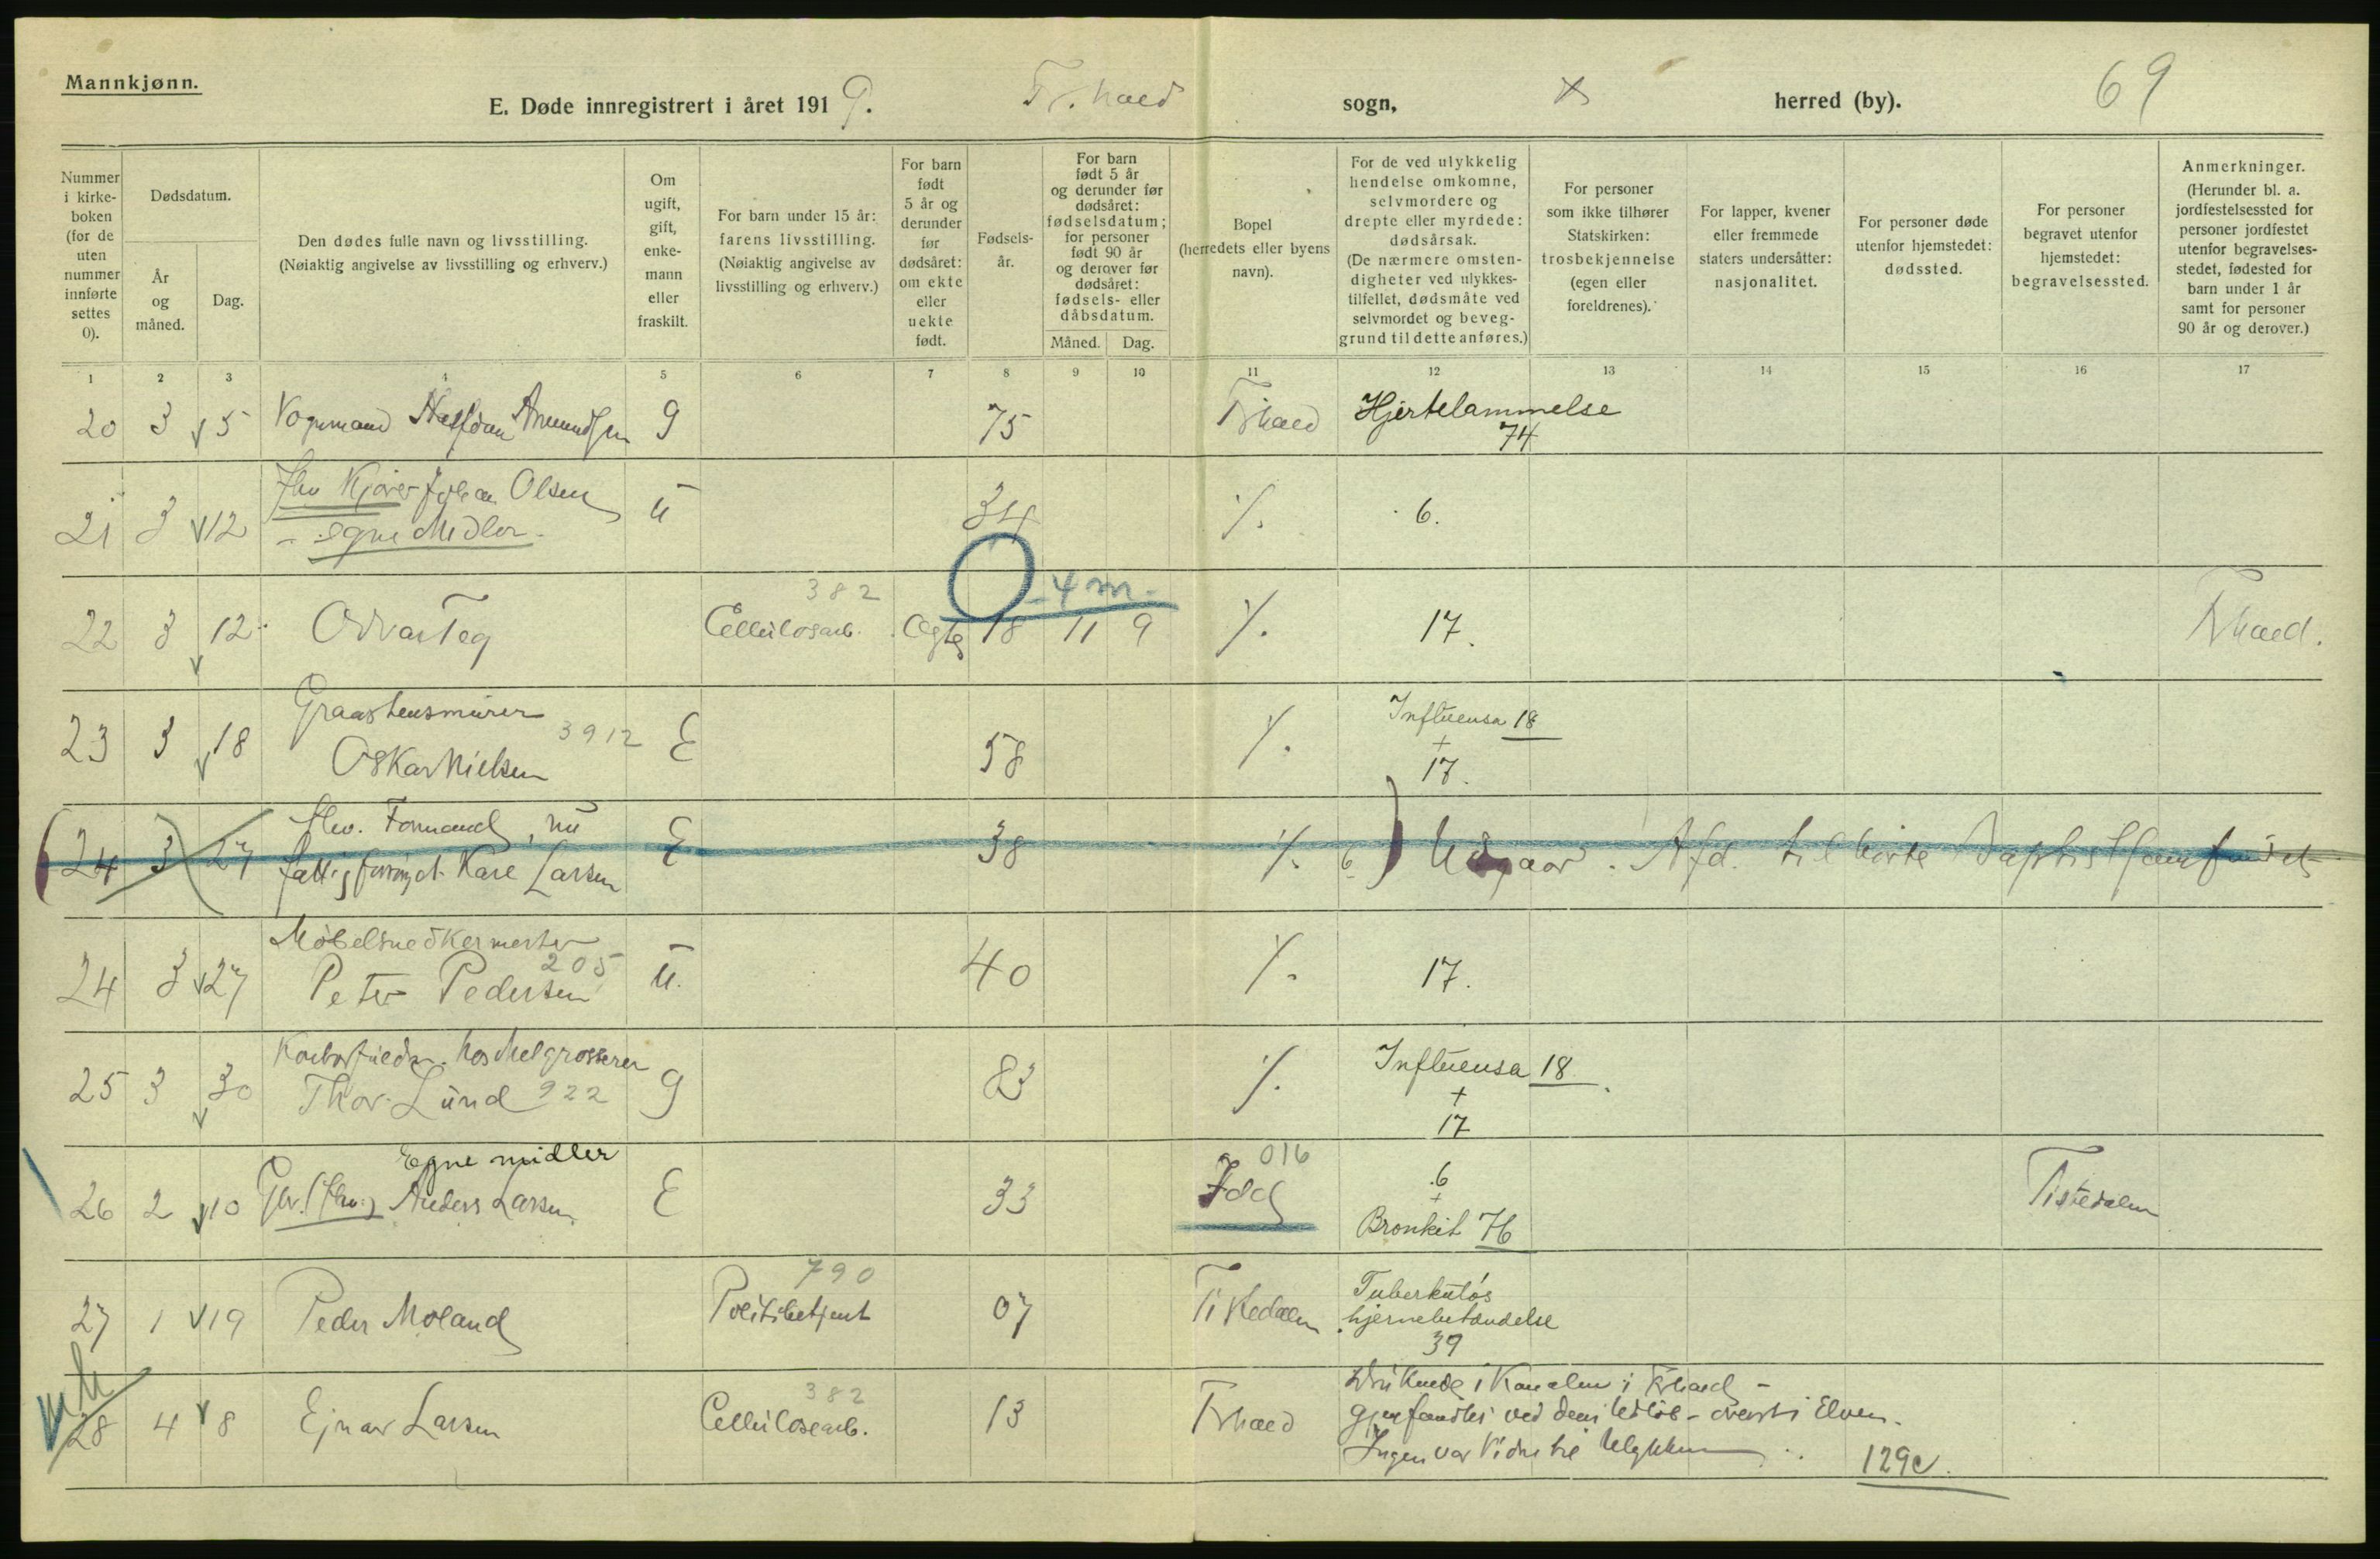 Mannkjønn.
E. Døde innregistrert i året 1919. Fr.hald sogn, herred (by). 69
Nummer i kirkeboken (for de uten nummer innførte settes 0).
Dødsdatum.
År og måned.
Dag.
Den dødes fulle navn og livsstilling. (Nøiaktig angivelse av livsstilling og erhverv.)
Om ugift, gift, enkemann eller fraskilt.
For barn under 15 år: farens livsstilling. (Nøiaktig angivelse av livsstilling og erhverv.)
For barn født 5 år og derunder før dødsåret: om ekte eller uekte født.
Fødselsår.
For barn født 5 år og derunder før dødsåret: fødselsdatum; for personer født 90 år og derover før dødsåret: fødsels- eller dåbsdatum.
Måned. Dag.
Bopel (herredets eller byens navn).
For de ved ulykkelig hendelse omkomne, selvmordere og drepte eller myrdede: dødsårsak. (De nærmere omstendigheter ved ulykkestilfellet, dødsmåte ved selvmordet og beveggrund til dette anføres.)
For personer som ikke tilhører Statskirken: trosbekjennelse (egen eller foreldrenes).
For lapper, kvener eller fremmede staters undersåtter: nasjonalitet.
For personer døde utenfor hjemstedet: dødssted.
For personer begravet utenfor hjemstedet: begravelsessted.
Anmerkninger. (Herunder bl. a. jordfestelsessted for personer jordfestet utenfor begravelsesstedet, fødested for barn under 1 år samt for personer 90 år og derover.)
1 2 3 4 5 6 7 8 9 10 11 12 13 14 15 16 17
20 3 5 Vognmand Halfdan Amundsen G 75 Frhald Hjertelammelse
74
21 3 12 fhv Kjører Johan Olsen U 34 ٪. 6.
- egne Midler -
382 0 - 4 m -
22 3 12 Odvar Teg Cellulosearb. Ægte 18 11 9 ٪. 17. Frhald.
Graastensmurer
23 3 18 3912 E 58 ٪. Influensa 18
Oskar Nielsen + 17.
24 3 27 fhv. Formand, nu E 38 ٪. 6 Udgaar. Afd. tilhørte Baptistsamfundet
fattigforsørget Kare Larsen
Møbelsnedkermester
24 3 27 205 U. 40 ٪. 17.
Peter Pedersen
25 3 30 Kontorfuldm. hos Melgrosserer G 83 ٪. Influensa 18
Thor. Lund 922 + 17
Egne midler 016
26 2 10 (fhv.) Anders Larsen E 33 Idd 6 + Bronkit 76 Tistedalen
790
27 1 19 Peder Moland Politibetjent 07 Tistedalen Tuberkuløs
hjernebetændelse
39
mu 382
28 4 8 Ejnar Larsen Cellulosearb. 13 Frhald Druknede i Kanalen i Frhald -
Gjenfandtes ved dens Udløb - øverst i Elven.
Ingen var Vidne til Ulykken
129c.